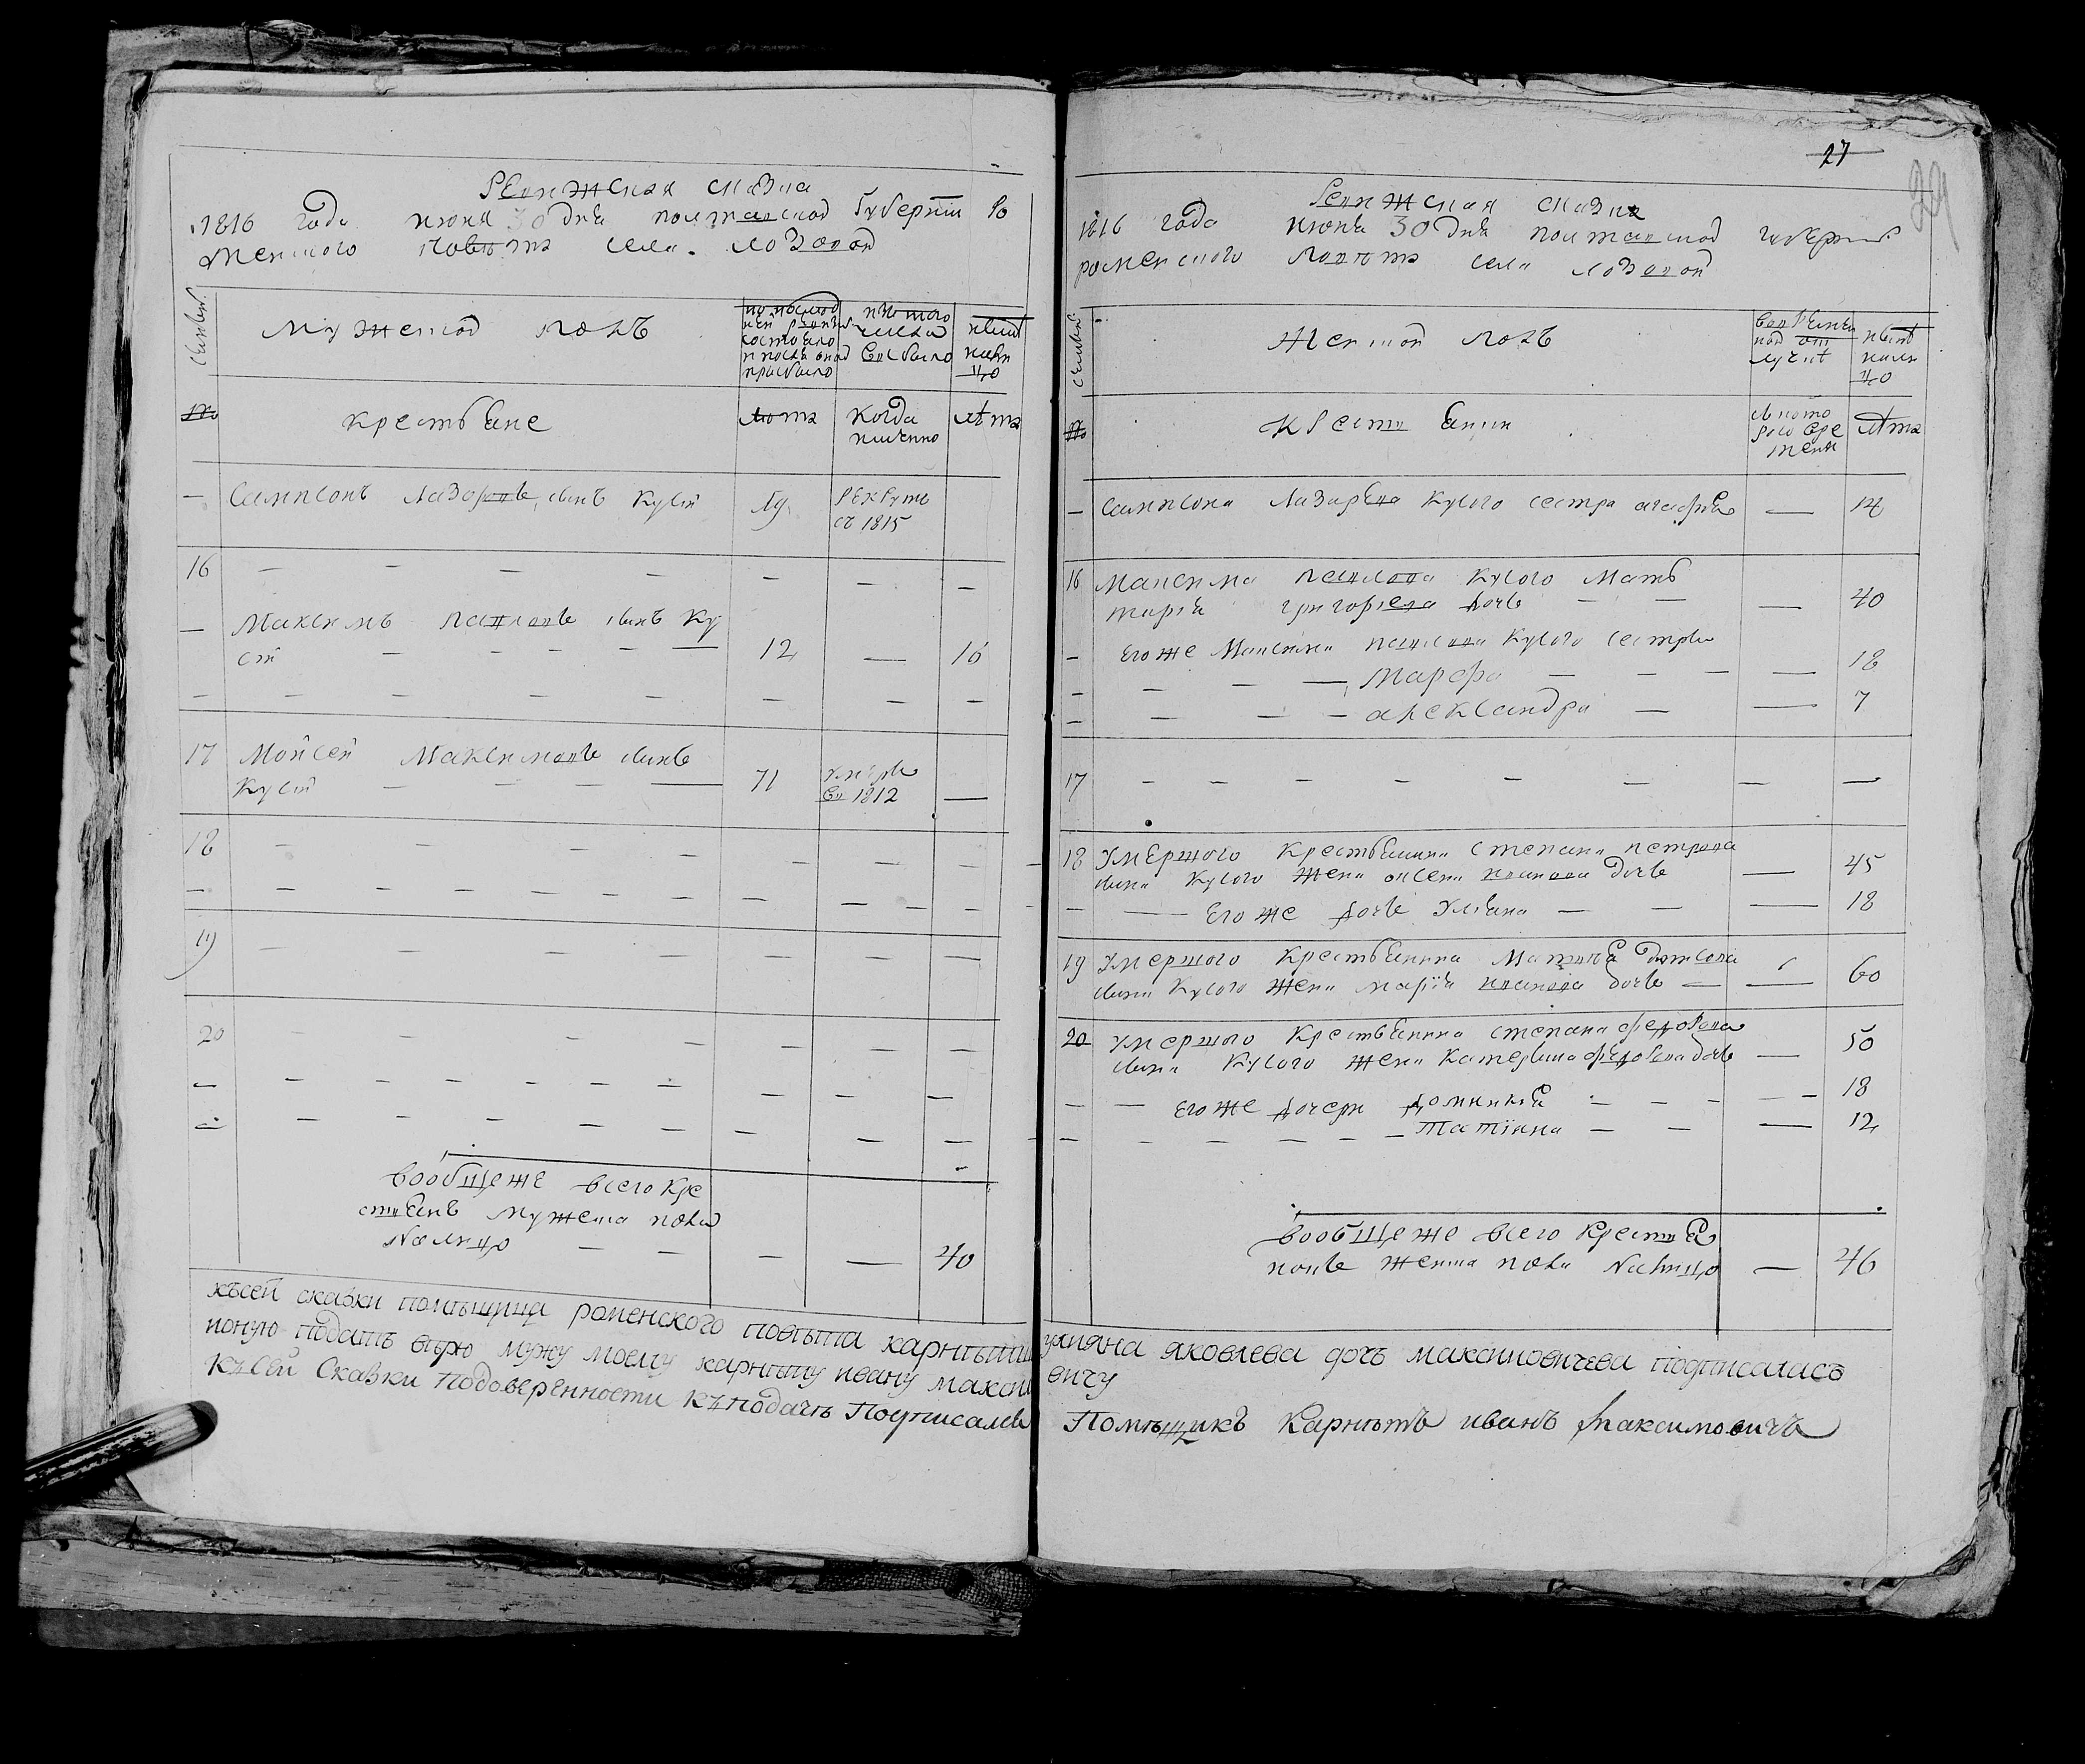 Ревижская сказка
1816 года июня 30 дня полтавской губернии Ро
менского повѣта села Лозовой
семьи
Мужеской полъ
по послед
ней ревизіи
состояло
и после оной
прибыло
изъ того
числа
выбыло
ныне
на ли
цо
№
крестьяне
лѣта
когда
имянно
лѣта
— Сампсонъ Лазаревъ сынъ Кусій 19 рекрутъ
съ 1815
16 — — — — — — —
— Максимъ Павловъ сынъ Ку
сій — — — — — 12 — 16
— — — — — — — —
17 Мойсей Максимовъ сынъ
Кусій — — — — 71 умеръ
въ 1812 —
18 — — — — — — —
— — — — — — — — — —
19 — — — — — — —
20 — — — — — — —
— — — — — — — — — —
— — — — — — — — — —
вообще же всего кре
стьянъ мужеска пола
налицо — — — — 40
27
29
Ревижская сказка
1816 года июня 30 дня полтавской губерніи
роменского повѣта села лозовой
семьи
Женской полъ
во времен
ной от
лучке
ныне
на ли
цо
№
крестьянки
с кото
рого вре
мени
лѣта
— Сампсона Лазарева Кусого сестра агафія — 14
16 Максима Павлова Кусого мать
марія григорьева дочь — — — 40
— его же Максима павлова Кусого сестры
— — — — Марфа — — — — 18
— — — — александра — — 7
17 — — — — — — — —
18 Умершого крестьянина степана петрова
сына Кусого жена оксена иванова дочь — 45
— — его же дочь Уліяна — — — 18
19 Умершого крестьянина Матвѣя
сына Кусого жена марія иванова дочь — — 60
20 умершого крестьянина степана федорова
сына Кусого жена катерина федорова дочь — 50
— — его же дочери домникія — — — — — 18
— — — — — — — татіяна — — — 12
вообще же всего крестья
нокъ женска пола налицо — 46
късей сказки помѣщица роменского повѣта карнѣиш уліяна яковлева дочъ максимовичева подписаласъ
ионую подать вѣрю мужу моему карнѣту ивану макси
вичу
Къ сей Сказки Подоверенности къ подачѣ Подписался Помѣщикъ Карнѣтъ иванъ максимовичъ